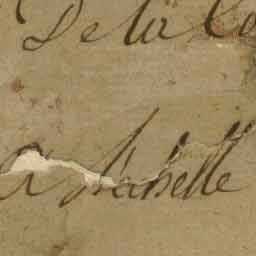 De la Co
a Nabelle